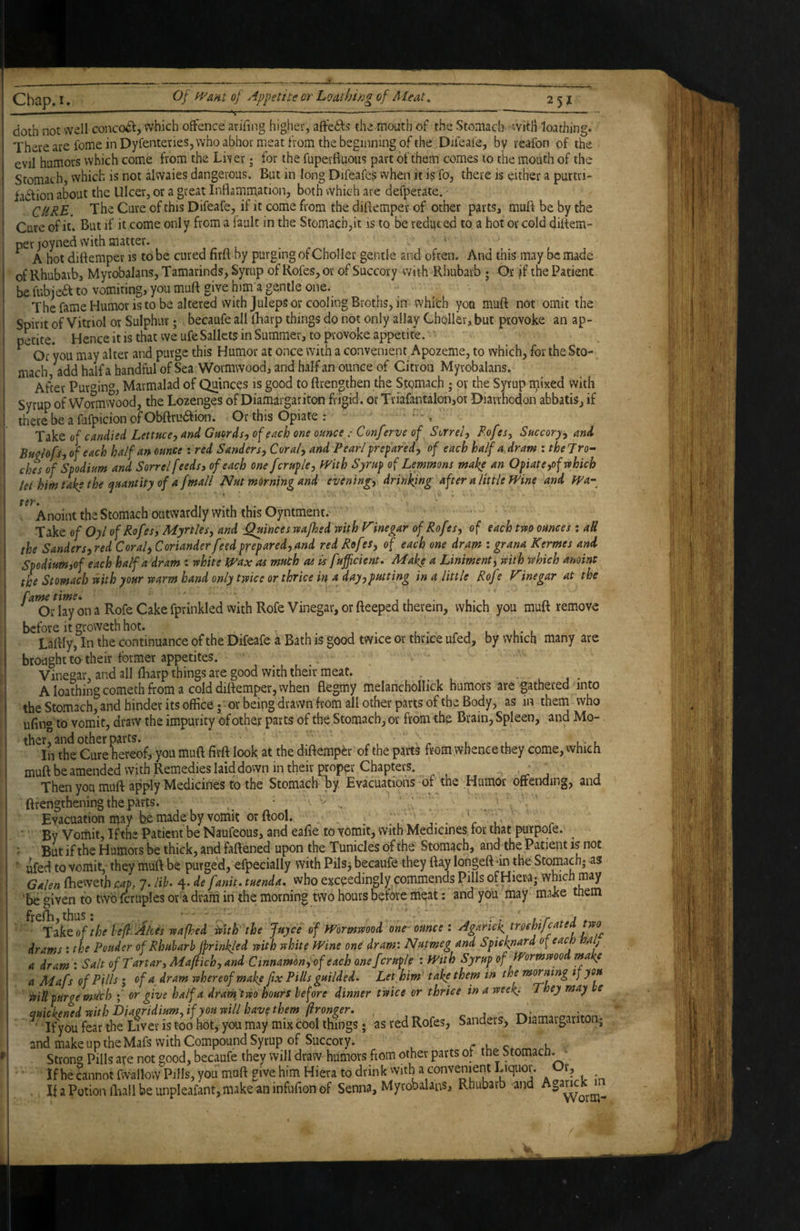 Chap. 1. Of Want of Appetite or Loathing of Meat. 251
doth not well concoct, which offence arising higher, affects the mouth of the Stomach with loathing.
There are some in Dysenteries, who abhor meat from the beginning of the Disease, by reason of the
evil humors which come from the Liver; for the superfluous part of them comes to the mouth of the
Stomach, which is not alwaies dangerous. But in long Diseases when it is so, there is either a putri-
faction about the Ulcer, or a great Inflammation, both which are desperate.
CURE. The Cure of this Disease, if it come from the distemper of other parts, must be by the
Cure of it. But if it come only from a fault in the Stomach, it is to be reduced to a hot or cold distem-
per joyned with matter.
A hot distemper is to be cured first by purging of Choller gentle and often. And this may be made
of Rhubarb, Myrobalans, Tamarinds, Syrup of Roses, or of Succory with Rhubarb; Or if the Patient
be subject to vomiting, you must give him a gentle one.
The same Humor is to be altered with Juleps or cooling Broths, in which you must not omit the
Spirit of Vitriol or Sulphur; because all sharp things do not only allay Choller, but provoke an ap-
petite. Hence it is that we use Sallets in Summer, to provoke appetite.
Or you may alter and purge this Humor at once with a convenient Apozeme, to which, for the Sto-
mach, add half a handful of Sea Wormwood, and half an ounce of Citron Myrobalans.
After Purging, Marmalad of Quinces is good to strengthen the Stomach; or the Syrup mixed with
Syrup of Wormwood, the Lozenges of Diamargariton frigid. or Triasantalon, or Diarrhodon abbatis, if
there be a suspicion of Obstruction. Or this Opiate:
Take of candied Lettuce, and Guords, of each one ounce: Conserve of Sorrel, Roses, Succory, and
Bugloss, of each half an ounce: red Sanders, Coral, and Pearl prepared, of each half a dram: the Tro-
ches of Spodium and Sorrel seeds, of each one scruple, With Syrup of Lemmons make an Opiate, of which
let him take the quantity of a small Nut morning and evening, drinking after a little Wine and Wa-
ter.
Anoint the Stomach outwardly with this Oyntment.
Take of Oyl of Roses, Myrtles, and Quinces washed with Vinegar of Roses, of each two ounces: all
the Sanders, red Coral, Coriander seed prepared, and red Roses, of each one dram: grana Kermes and
Spodium, of each half a dram: white Wax as much as is sufficient. Make a Liniment, with which anoint
the Stomach with your warm hand only twice or thrice in a day, putting in a little Rose Vinegar at the
same time.
Or lay on a Rose Cake sprinkled with Rose Vinegar, or steeped therein, which you must remove
before it groweth hot.
Lastly, In the continuance of the Disease a Bath is good twice or thrice used, by which many are
brought to their former appetites.
Vinegar, and all sharp things are good with their meat.
A loathing cometh from a cold distemper, when flegmy melanchollick humors are gathered into
the Stomach, and hinder its office; or being drawn from all other parts of the Body, as in them who
using to vomit, draw the impurity of other parts of the Stomach, or from the Brain, Spleen, and Mo-
ther, and other parts.
In the Cure hereof, you must first look at the distemper of the parts from whence they come, which
must be amended with Remedies laid down in their proper Chapters.
Then you must apply Medicines to the Stomach by Evacuations of the Humor offending, and
strengthening the parts.
Evacuation may be made by vomit or stool.
By Vomit, If the Patient be Nauseous, and easie to vomit, with Medicines for that purpose.
But if the Humors be thick, and fastened upon the Tunicles of the Stomach, and the Patient is not
used to vomit, they must be purged, especially with Pils; because they stay longest in the Stomach; as
Galen sheweth cap. 7. lib. 4. de sanit. tuenda. who exceedingly commends Pills of Hiera; which may
be given to two scruples or a dram in the morning two hours before meat: and you may make them
fresh, thus:
Take of the best Aloes washed with the Juyce of Wormwood one ounce: Agarick trochiscated two
drams: the Pouder of Rhubarb sprinkled with white Wine one dram: Nutmeg and Spicknard of each half
a dram: Salt of Tartar, Mastich, and Cinnamon, of each one scruple: With Syrup of Wormwood make
a Mass of Pills; of a dram whereof make six Pills guilded. Let him take them in the morning if you
will purge much; or give half a dram two hours before dinner twice or thrice in a week. They may be
quickened with Diagridium, if you will have them stronger.
If you fear the Liver is too hot, you may mix cool things; as red Roses, Sanders, Diamargariton;
and make up the Mass with Compound Syrup of Succory.
Strong Pills are not good, because they will draw humors from other parts of the Stomach.
If he cannot swallow Pills, you must give him Hiera to drink with a convenient Liquor. Or,
If a Potion shall be unpleasant, make an infusion of Senna, Myrobalans, Rhubarb and Agarick in
Worm-